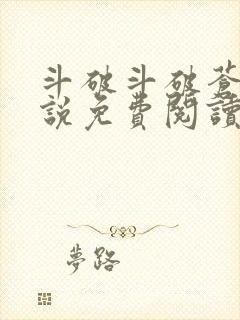 斗破斗破蒼
說免費閱讀
夢路